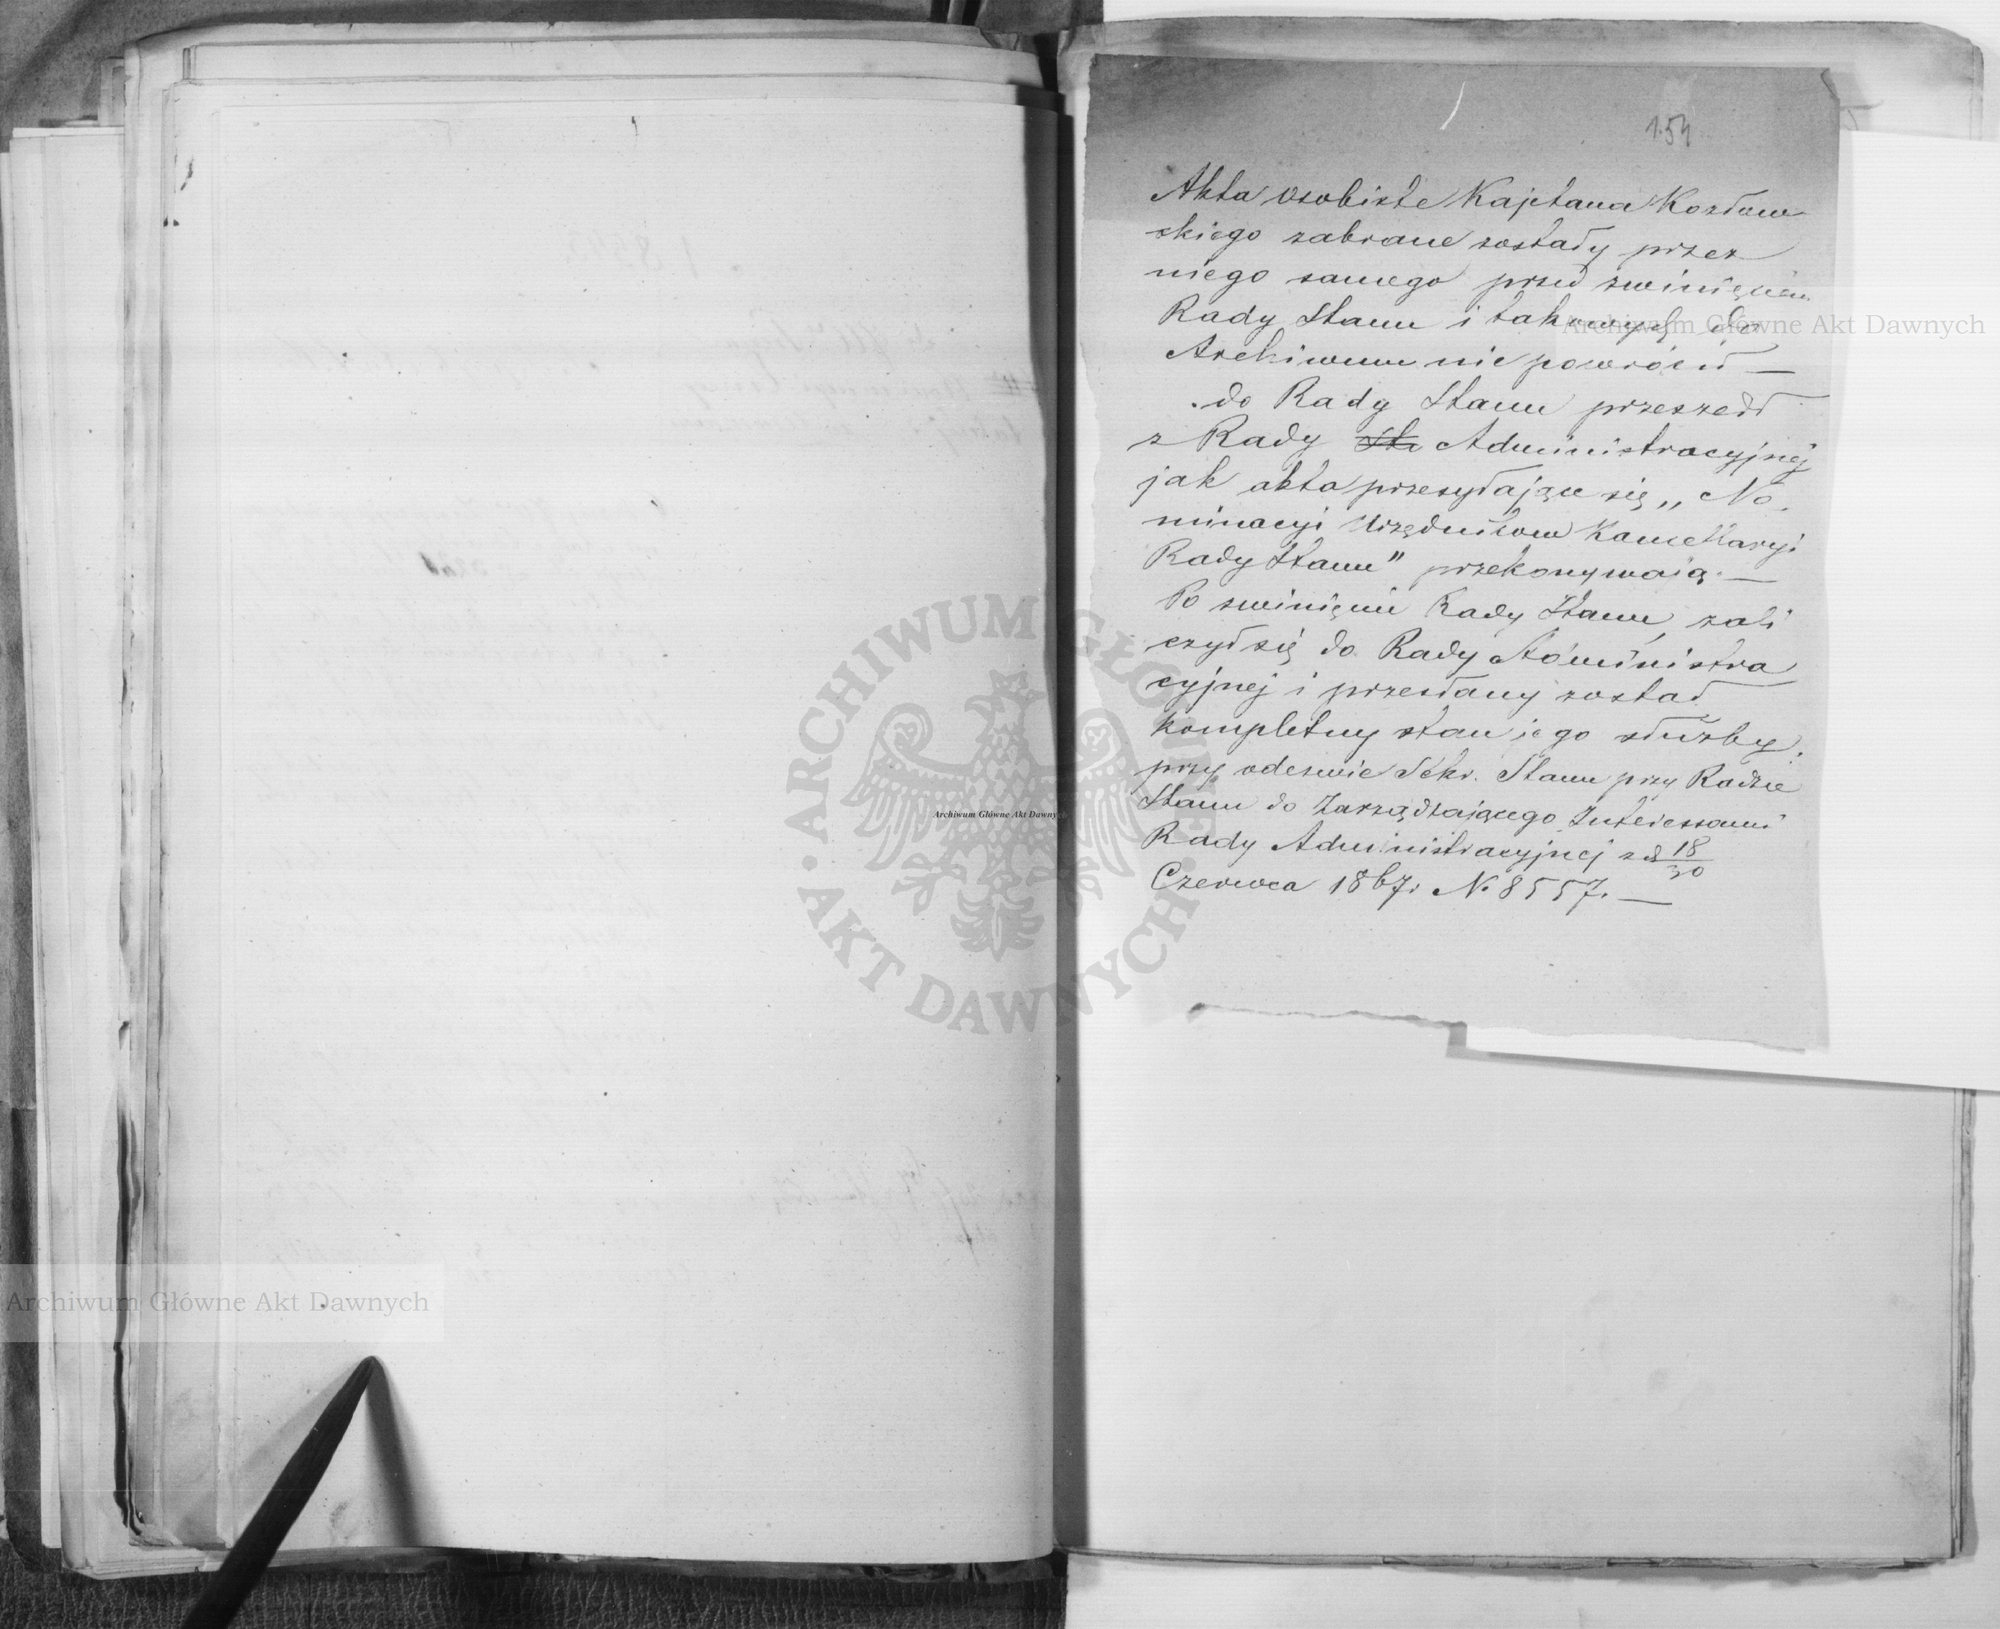 154
Akta osobiste Kajetana Kozłow
skiego zabrane zostały przez
niego samego przed zwinięciem
Rady Stanu i takowych do
Archiwum nie powrócił —
do Rady Stanu przeszedł
z Rady St. Administracyjnej
jak akta przesyłające się „No
minacyi Urzędników Kancellaryi
Rady Stanu" przekonywają. —
Po zwinięciu Rady Stanu, zali
czył się do Rady Administra
cyjnej i przesłany został
kompletny stan jego służby
przy odezwie Sekr. Stanu przy Radzie
Stanu do Zarządzającego Interessami
Rady Administracyjnej z d 18/30
Czerwca 1867r. N. 8557. —
Archiwum Główne Akt Dawnych
Archiwum Główne Akt Dawnych
Archiwum Główne Akt Dawnych
ARCHIWUM GŁÓWNE AKT DAWNYCH